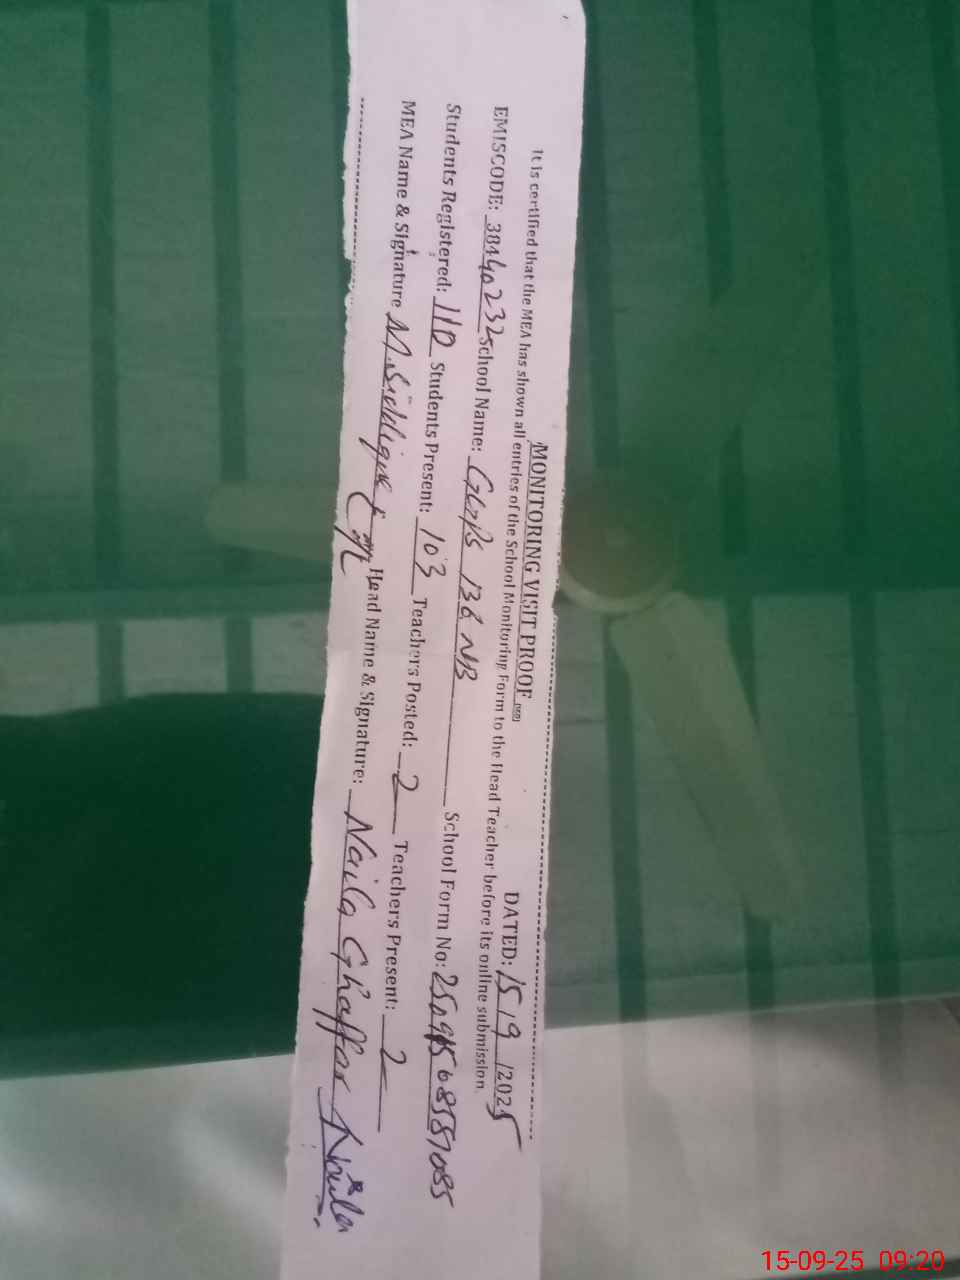 MONITORING VISIT PROOF
DATED: 15/9/2025
It is certified that the MEA has shown all entries of the School Monitoring Form to the Head Teacher before its online submission.
EMISCODE: 38440232 School Name: GGPS 136 NB School Form No:
Students Registered: 110 Students Present: 103 Teachers Posted: 2 Teachers Present: 2
MEA Name & Signature M. Siddique Head Name & Signature: Naila Ghaffar Naila
15-09-25 09:20